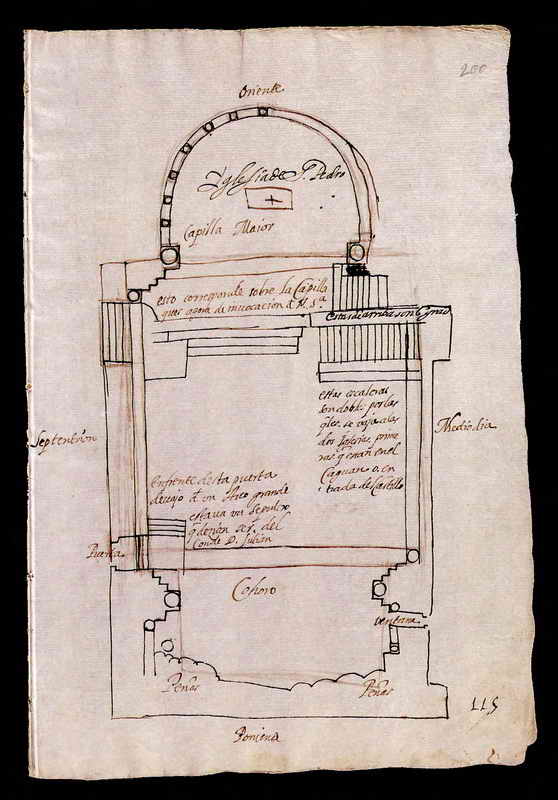 200
Oriente
Yglesia de S. Pedro
Capilla Maior
esto corresponde sobre la Capilla
ques agora de invocacion d N. Sª
estas de arriva son
estas escaleras
son dobl. por las
qles. se vaja alas
dos Iglesias, prime
ras, q̃ estan en el
Çaguan o en
trada del Castillo
Septentrion
Medio dia
Enfrente desta puerta
devajo d un Arco grande
estava un sepulcro
q̃ decian ser del
Conde D. Julian
Puerta
Cohoro
ventana
Peñas
Peñas
115
Poniente